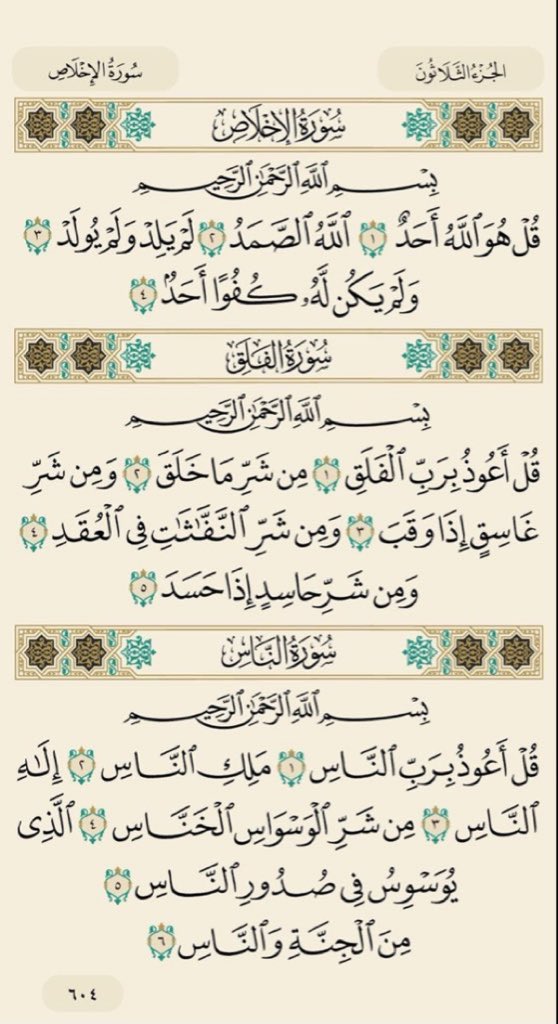 الجُزْءُ الثَّلَاثُونَ
سُورَةُ الإِخْلَاصِ
سُورَةُ الإِخْلَاصِ
بِسْمِ اللَّهِ الرَّحْمَٰنِ الرَّحِيمِ
قُلْ هُوَ ٱللَّهُ أَحَدٌ ١ ٱللَّهُ ٱلصَّمَدُ ٢ لَمْ يَلِدْ وَلَمْ يُولَدْ ٣
وَلَمْ يَكُن لَّهُۥ كُفُوًا أَحَدٌۢ ٤
سُورَةُ الفَلَقِ
بِسْمِ اللَّهِ الرَّحْمَٰنِ الرَّحِيمِ
قُلْ أَعُوذُ بِرَبِّ ٱلْفَلَقِ ١ مِن شَرِّ مَا خَلَقَ ٢ وَمِن شَرِّ
غَاسِقٍ إِذَا وَقَبَ ٣ وَمِن شَرِّ ٱلنَّفَّٰثَٰتِ فِى ٱلْعُقَدِ ٤
وَمِن شَرِّ حَاسِدٍ إِذَا حَسَدَ ٥
سُورَةُ النَّاسِ
بِسْمِ اللَّهِ الرَّحْمَٰنِ الرَّحِيمِ
قُلْ أَعُوذُ بِرَبِّ ٱلنَّاسِ ١ مَلِكِ ٱلنَّاسِ ٢ إِلَٰهِ
ٱلنَّاسِ ٣ مِن شَرِّ ٱلْوَسْوَاسِ ٱلْخَنَّاسِ ٤ ٱلَّذِى
يُوَسْوِسُ فِى صُدُورِ ٱلنَّاسِ ٥
مِنَ ٱلْجِنَّةِ وَٱلنَّاسِ ٦
٦٠٤